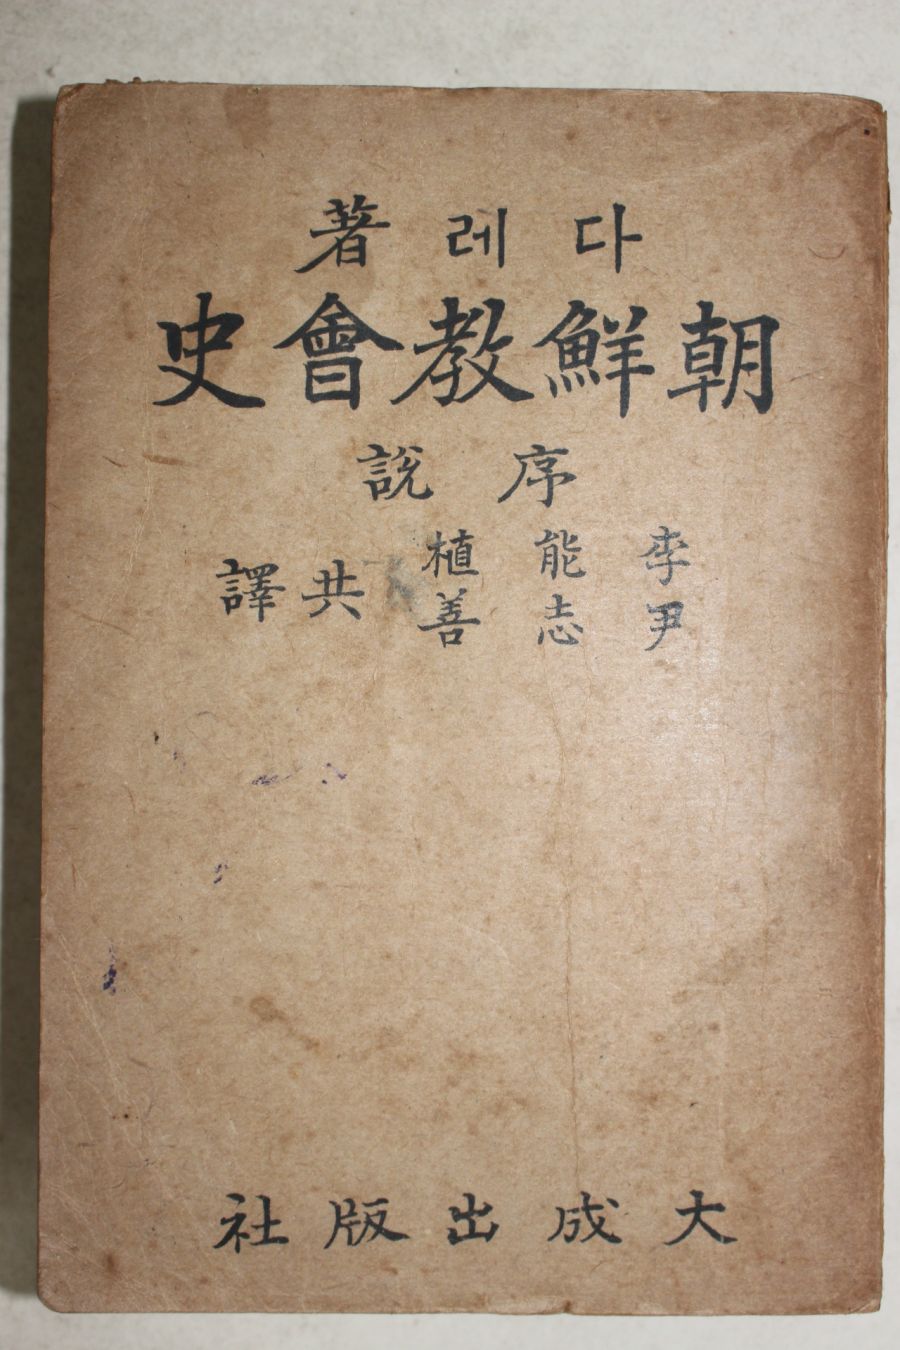 다레 著
朝鮮敎會史
序說
李能植
尹志善
共譯
大成出版社